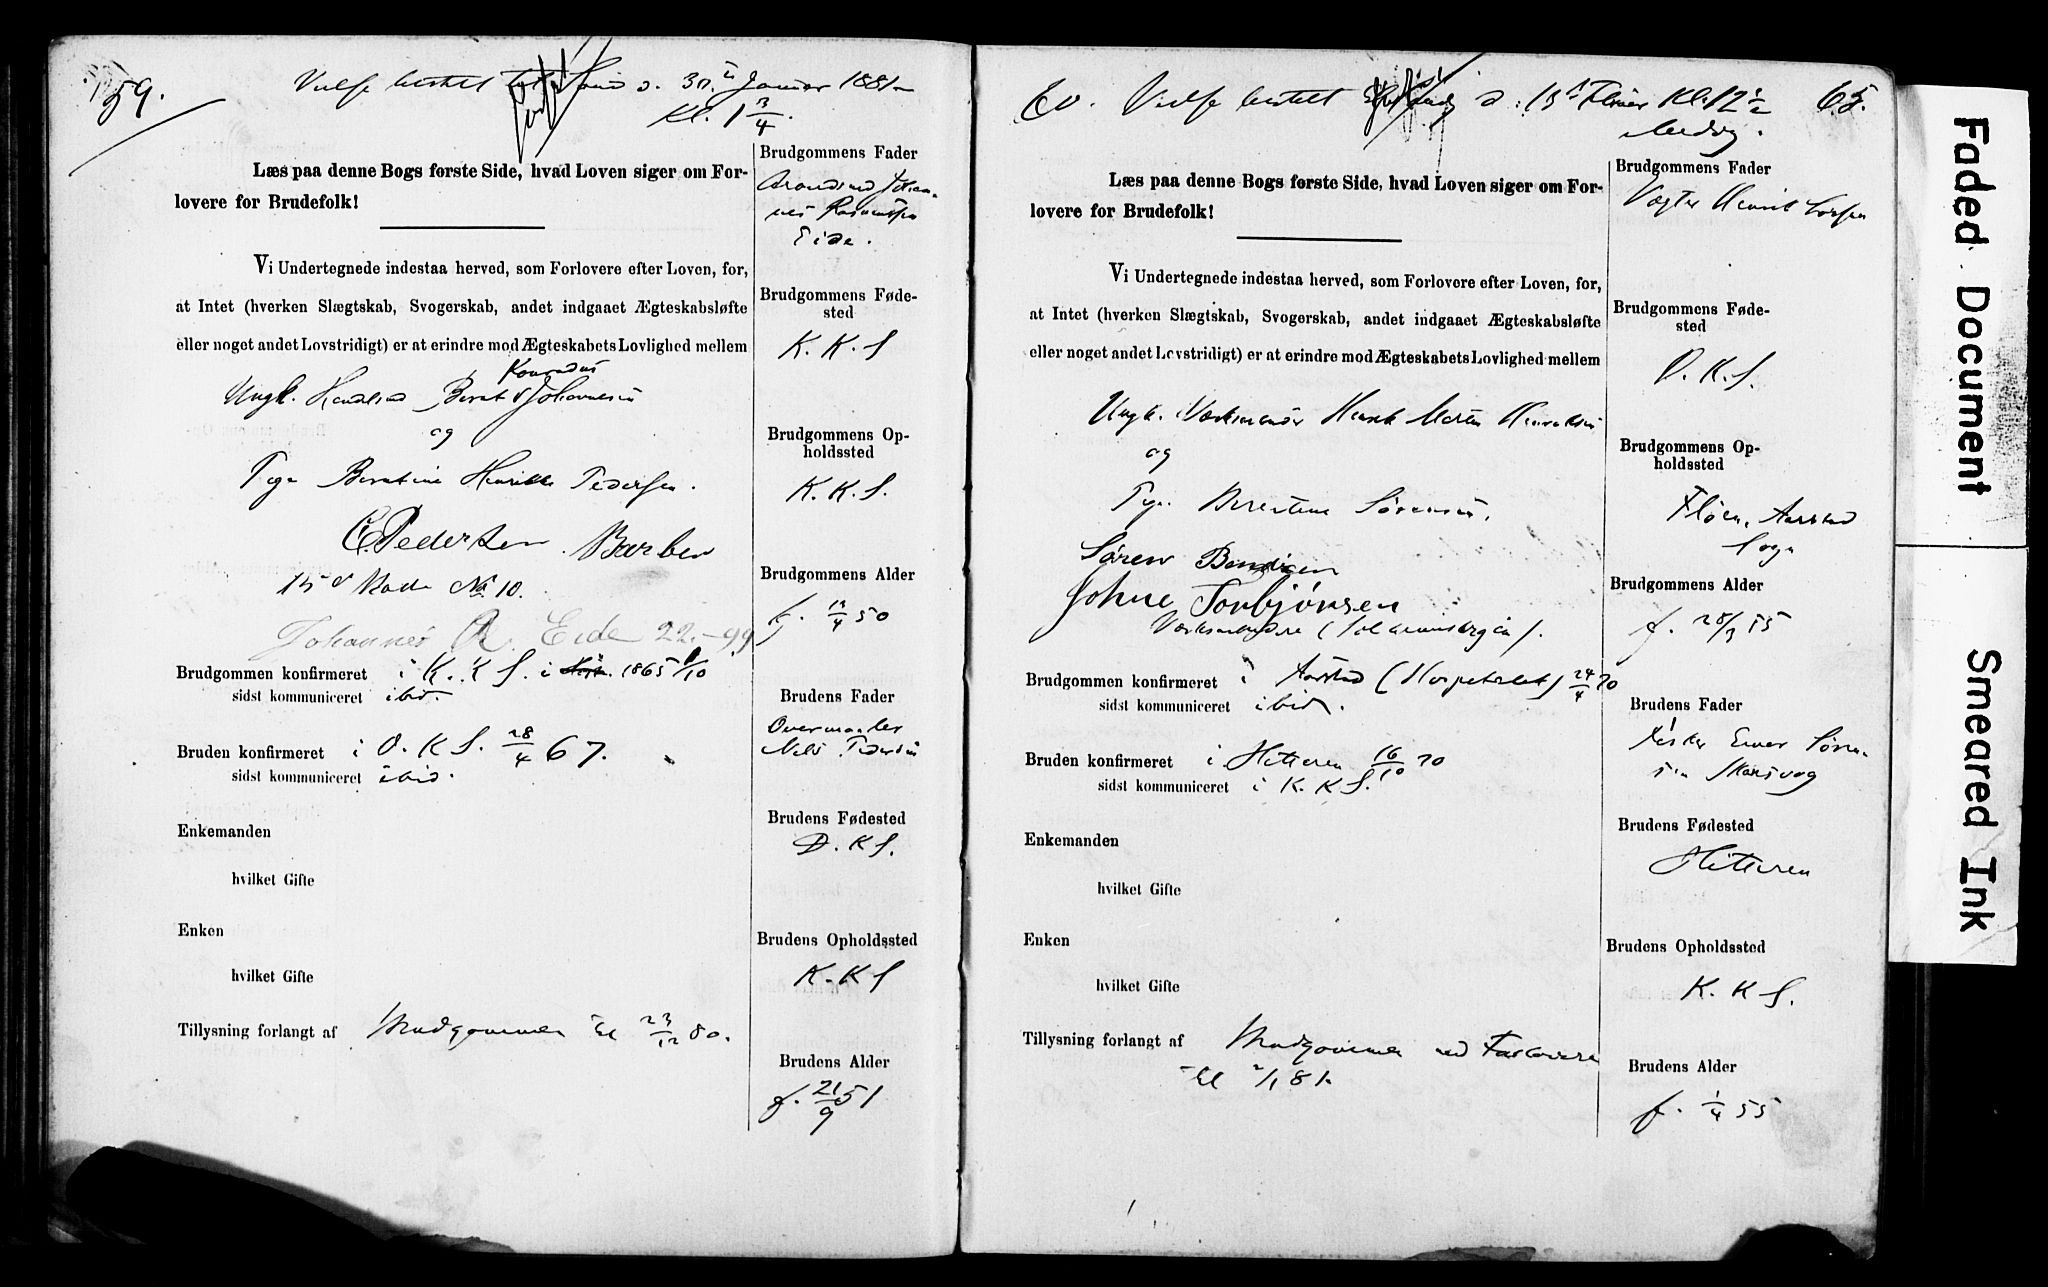 59.
Vielse bestilt d. 30 Januar 1881
Kl. 1 3/4.
Læs paa denne Bogs første Side, hvad Loven siger om For-
lovere for Brudefolk!
Vi Undertegnede indestaa herved, som Forlovere efter Loven, for,
at Intet (hverken Slægtskab, Svogerskab, andet indgaaet Ægteskabsløfte
eller noget andet Lovstridigt) er at erindre mod Ægteskabets Lovlighed mellem
Konradus
Ungk. Berent Johannesen
og
Pige Berntine Henrikke Pedersen.
C. Pedersen Barber
No 10.
Johannes R. Eide 22.-99
Brudgommen konfirmeret i K. K S. i 1865 1/10
sidst kommuniceret ibid.
Bruden konfirmeret i D. K S. 28/4 67.
sidst kommuniceret ibid.
Enkemanden
hvilket Gifte
Enken
hvilket Gifte
Tillysning forlangt af Brudgommen til 23/12 80.
Brudgommens Fader
Eide.
Brudgommens Føde-
sted
K. K. S
Brudgommens Op-
holdssted
K. K. S.
Brudgommens Alder
f. 12/4 50
Brudens Fader
Nils Pedersen
Brudens Fødested
D. K S.
Brudens Opholdssted
K. K S
Brudens Alder
f. 21/9 51
60. Vielse bestilt d. 13 Kl. 12 1/2 65.
Læs paa denne Bogs første Side, hvad Loven siger om For-
lovere for Brudefolk!
Vi Undertegnede indestaa herved, som Forlovere efter Loven, for,
at Intet (hverken Slægtskab, Svogerskab, andet indgaaet Ægteskabsløfte
eller noget andet Lovstridigt) er at erindre mod Ægteskabets Lovlighed mellem
Ungk. Henrik Martin Henriksen
og
Pige Berentine Sørensen.
Søren Bendixen
Johne Torbjørnsen
Brudgommen konfirmeret i Aarstad (Hospitalet) 24/4 70
sidst kommuniceret ibid.
Bruden konfirmeret i Hitteren 16/10 70
sidst kommuniceret i K. K S.
Enkemanden
hvilket Gifte
Enken
hvilket Gifte
Tillysning forlangt af Brudgommen med Forlovere
til 2/1 81.
Brudgommens Fader
Vægter Henrik
Brudgommens Føde-
sted
D. K. S.
Brudgommens Op-
holdssted
Fløen, Aarstad
Sogn
Brudgommens Alder
f. 28/3 55
Brudens Fader
Fisker Søren-
sen
Brudens Fødested
Hitteren
Brudens Opholdssted
K. K S.
Brudens Alder
f. 1/4 55
Faded Document
Smeared Ink